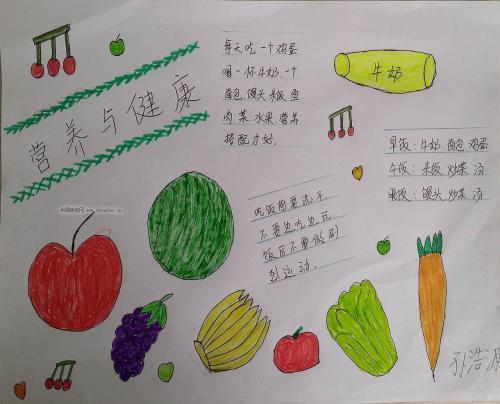 营养与健康
每天吃一个鸡蛋
喝一杯牛奶、一个
面包、馒头、米饭、鱼
肉、菜、水果、营养
搭配才好。
牛奶
早饭：牛奶 面包 鸡蛋
午饭：米饭 炒菜 汤
晚饭：馒头 炒菜 汤
吃饭前要洗手
不要边吃边玩
饭后不要做剧
烈运动。
孙浩